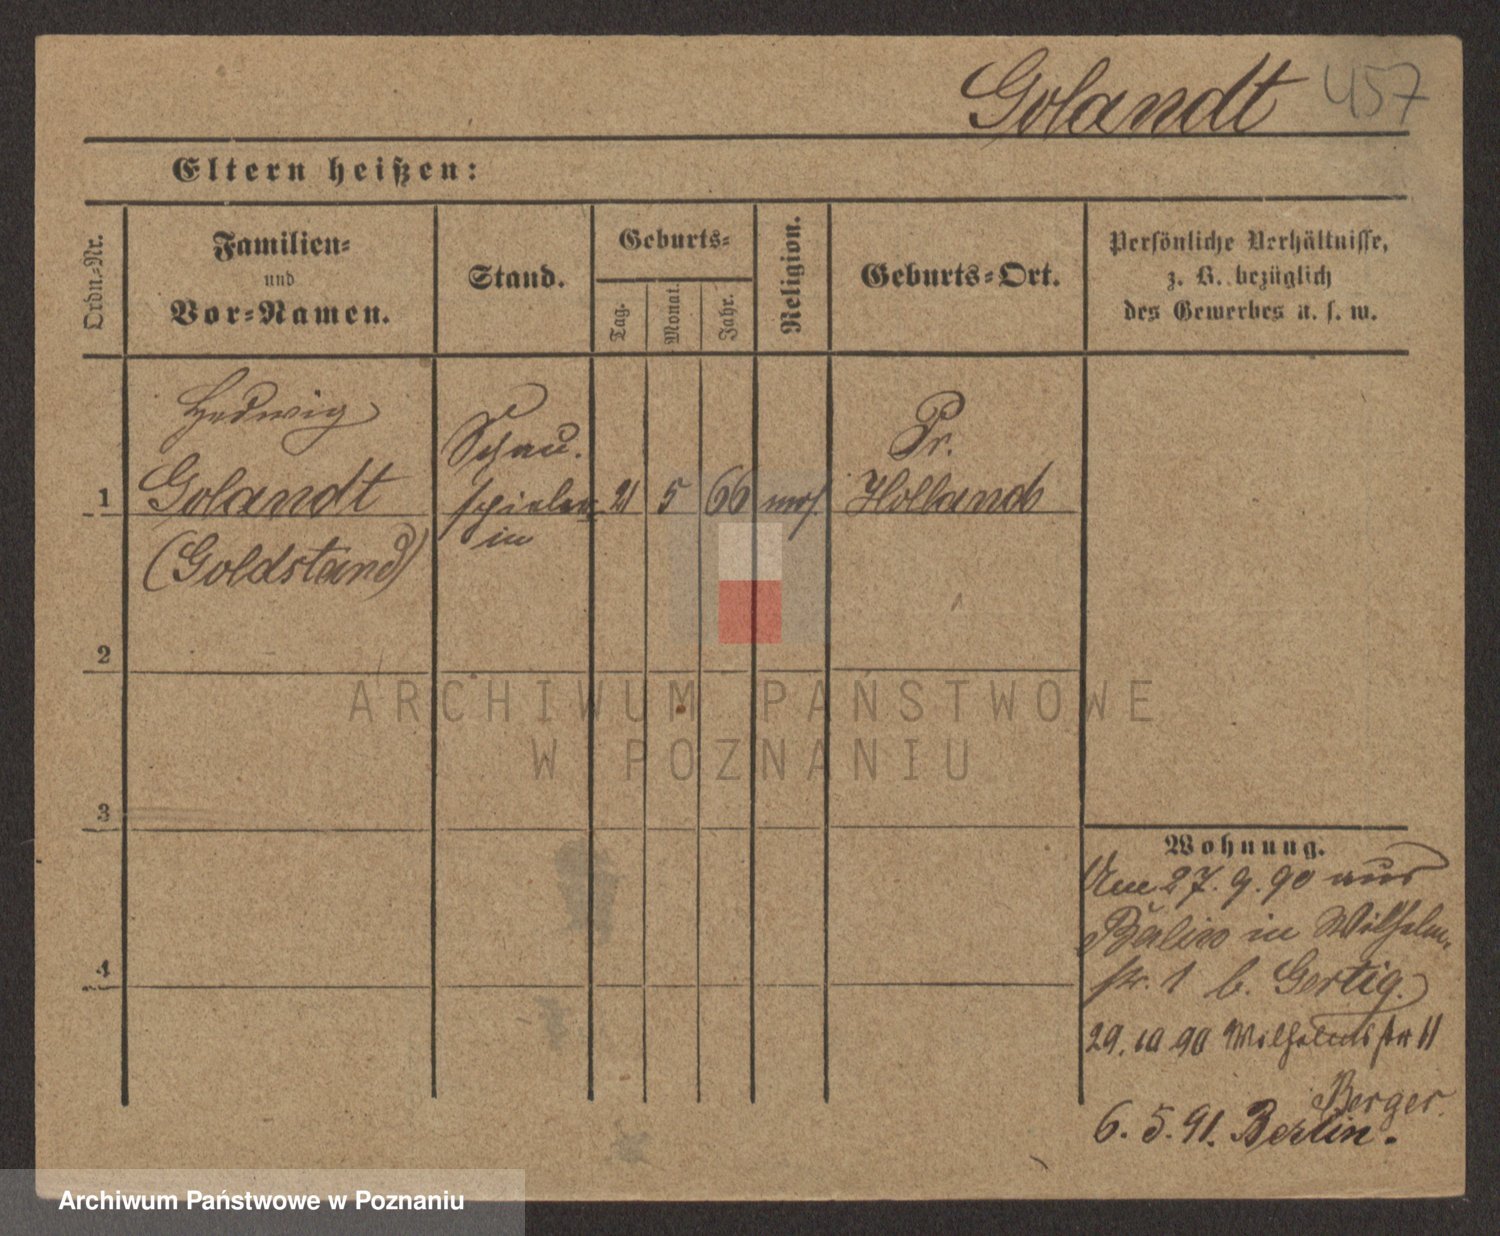 Golandt 457
Eltern heißen:
Ordn.-Nr.
Familien-
und
Vor-Namen.
Stand.
Geburts-
Tag.
Monat.
Jahr.
Religion.
Geburts-Ort.
Persönliche Verhältnisse,
z. B. bezüglich
des Gewerbes u. s. w.
Hedwig
Golandt
(Goldstand)
Schau-
spieler
in
1
21 5 66 mos.
Pr.
Holland
2
3
4
Wohnung.
Am 27.9.90 aus
Berlin in Wilhelm-
str. 1 b. Gertig.
29.10.90 Wilhelmstr 11
Berger.
6.5.91. Berlin.
ARCHIWUM PAŃSTWOWE
W POZNANIU
Archiwum Państwowe w Poznaniu